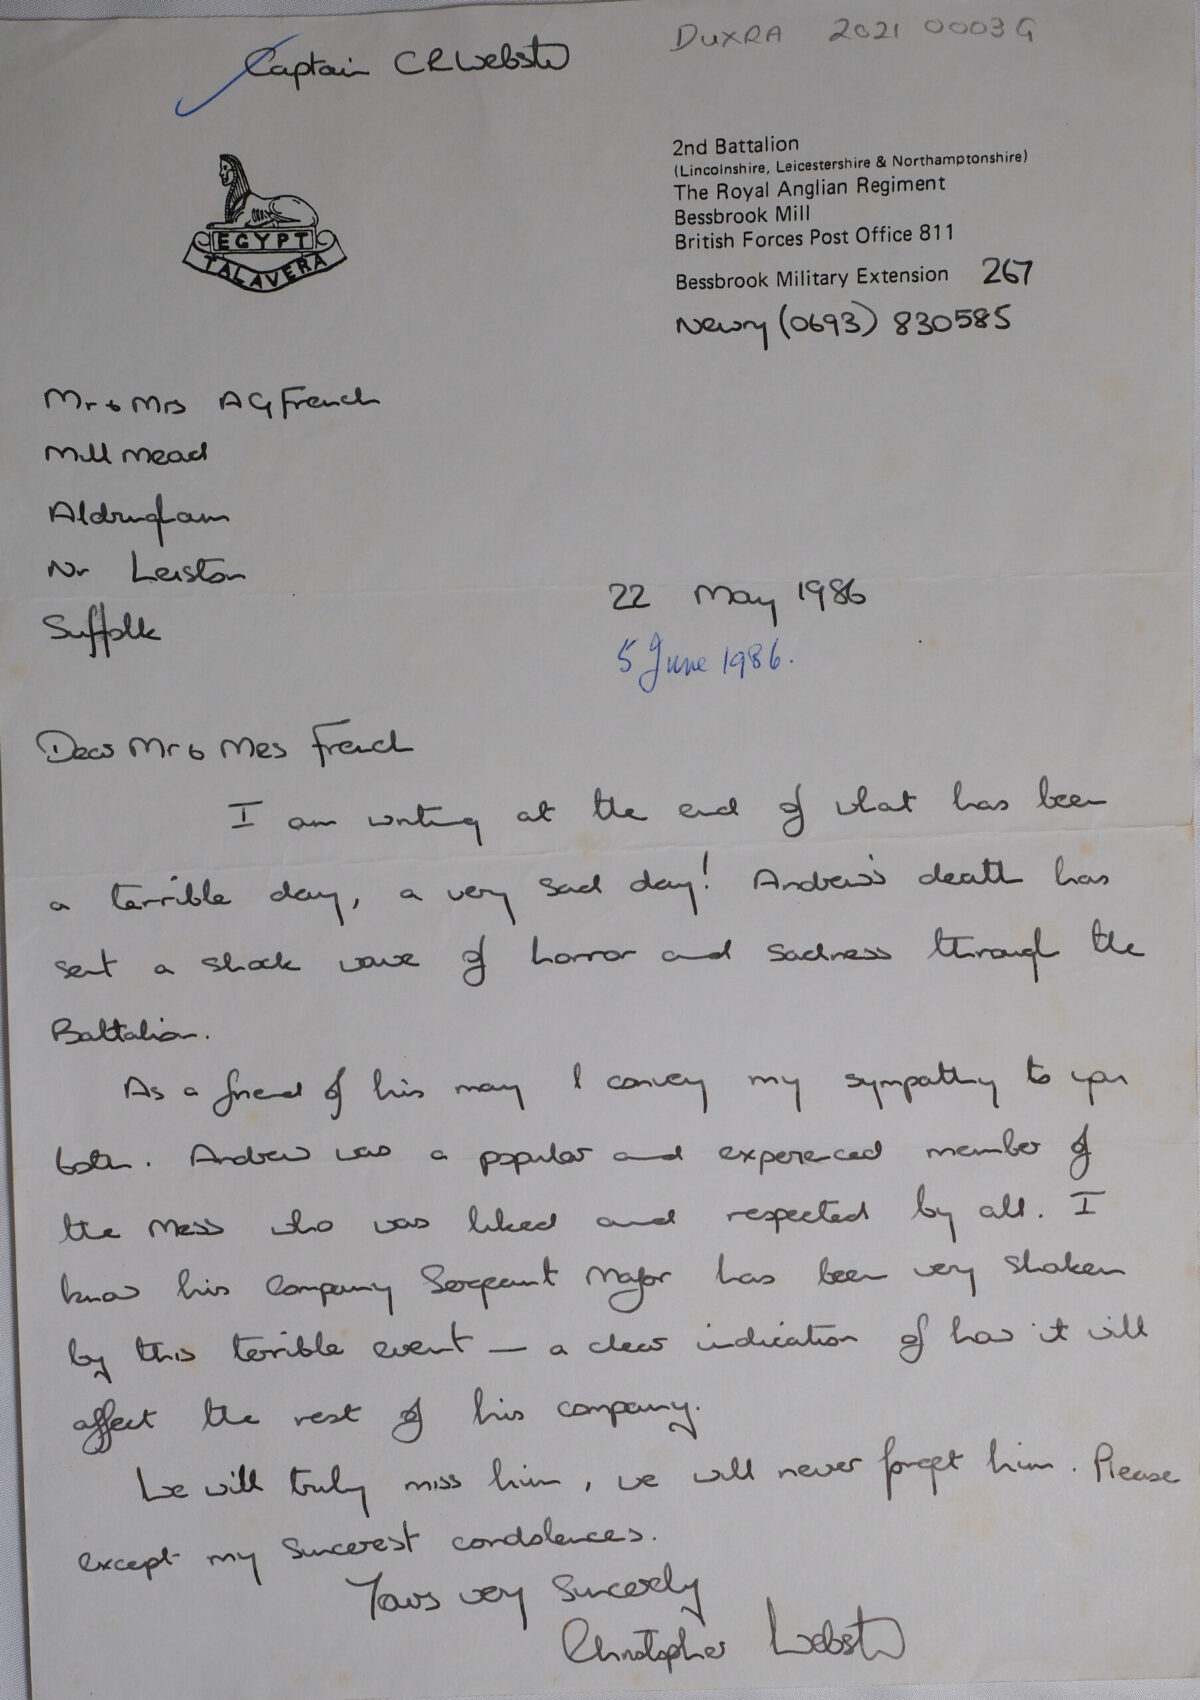 DUXRA 2021 0003G
Captain CRWebster
2nd Battalion
(Lincolnshire, Leicestershire & Northamptonshire)
The Royal Anglian Regiment
Bessbrook Mill
British Forces Post Office 811
Bessbrook Military Extension 267
Newry (0693) 830585
EGYPT
TALAVERA
Mr & Mrs AGFrench
Mill Mead
Aldringham
Nr Leiston
Suffolk
22 May 1986
5 June 1986.
Dear Mr & Mrs French
I am writing at the end of what has been
a terrible day, a very sad day! Andrew's death has
sent a shock wave of horror and sadness through the
Battalion.
As a friend of his may I convey my sympathy to you
both. Andrew was a popular and experienced member of
the Mess who was liked and respected by all. I
know his Company Sergeant Major has been very shaken
by this terrible event - a clear indication of how it will
affect the rest of his company.
We will truly miss him, we will never forget him. Please
except my sincerest condolences.
Yours very sincerely
Christopher Webster